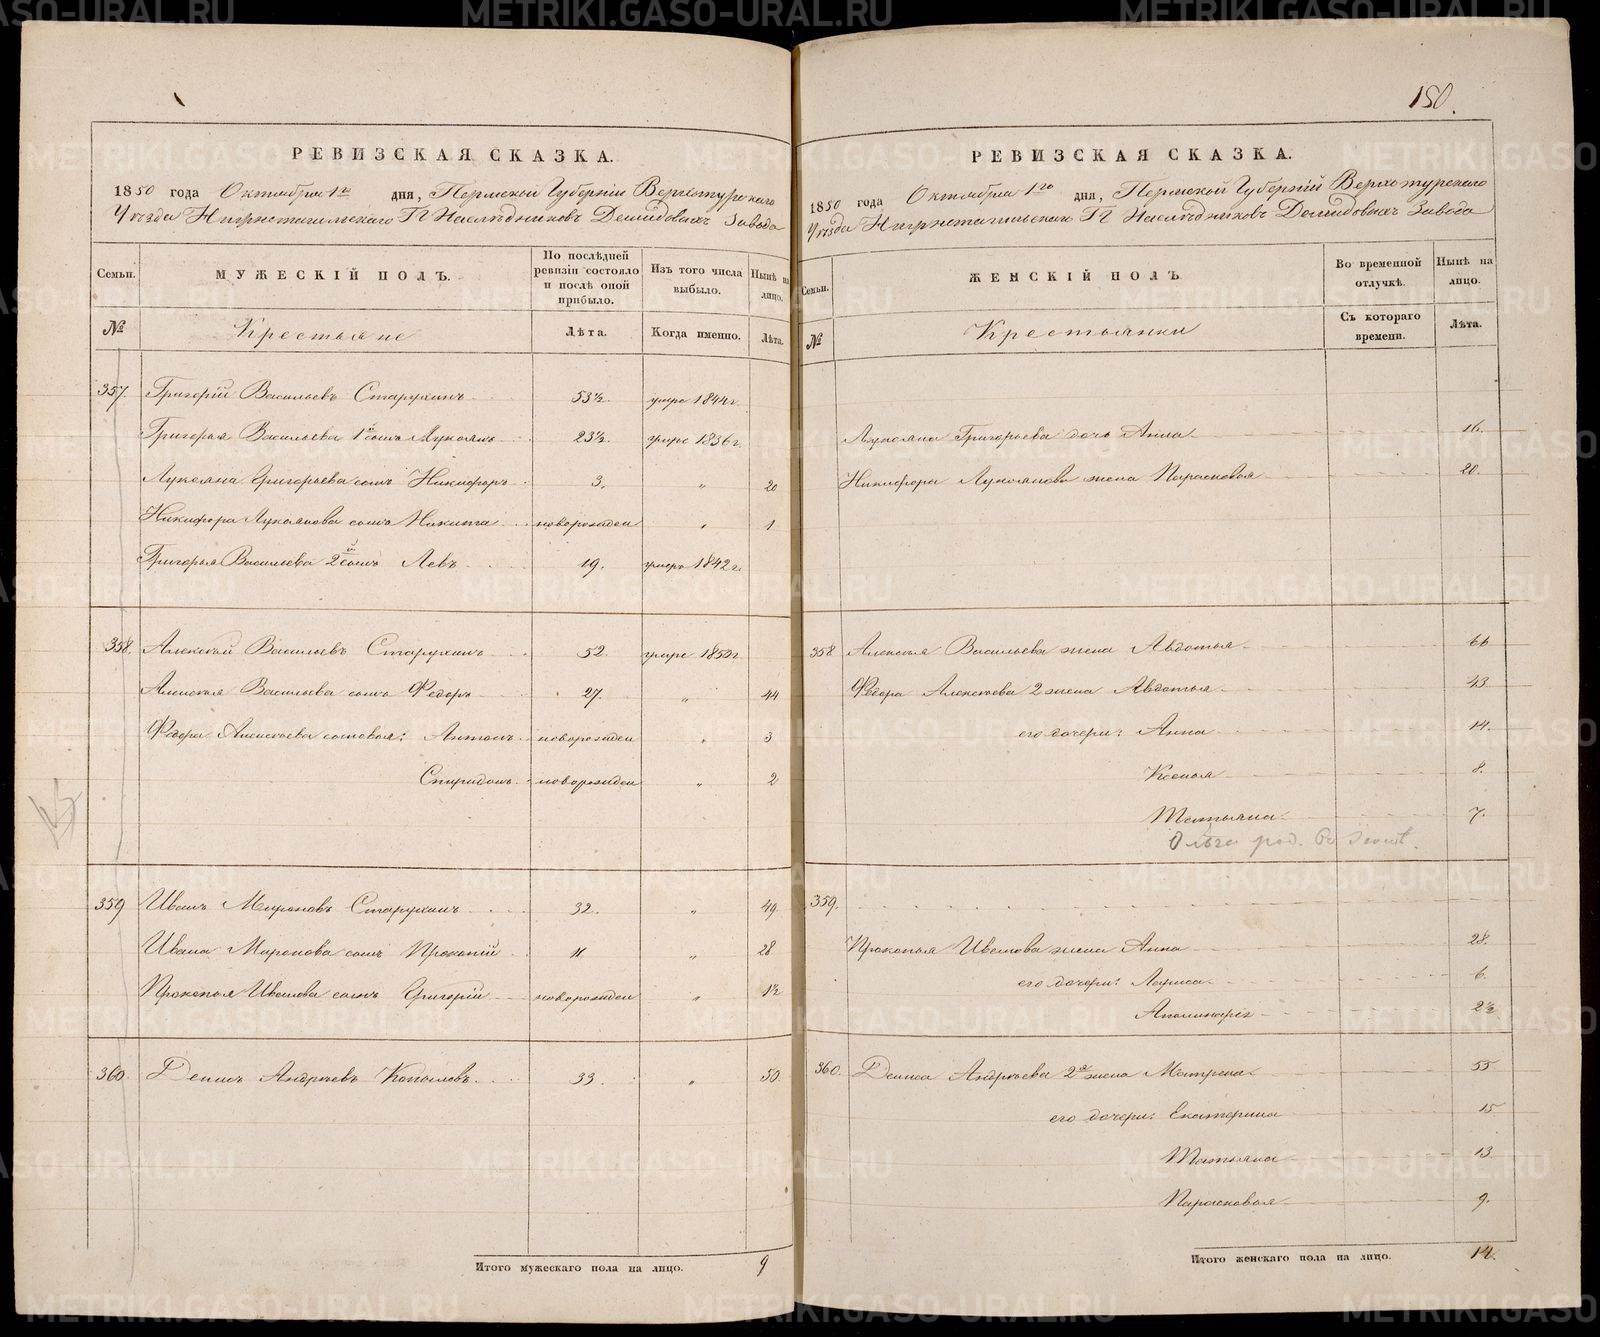 150.
РЕВИЗСКАЯ СКАЗКА.
1850 года Октября 1го дня, Пермской Губернiи Верхотурскаго
Уѣзда Нижнетагильскаго ГГ Наслѣдниковъ Демидовыхъ Завода
Семьи. МУЖЕСКIЙ ПОЛЪ. По послѣдней ревизiи состояло и послѣ оной прибыло. Изъ того числа выбыло. Нынѣ на лицо.
№ Крестьяне Лѣта. Когда именно. Лѣта.
357. Григорiй Васильевъ Старухинъ 53½ умре 1844 г.
Григорья Васильева 1й сынъ Лукоянъ 23½ умре 1836 г.
Лукояна Григорьева сынъ Никифоръ 3. „ 20
Никифора Лукоянова сынъ Никита новорожден „ 1
Григорья Васильева 2й сынъ Левъ 19. умре 1842 г.
358. Алексѣй Васильевъ Старухинъ 52. умре 1850 г
Алексѣя Васильева сынъ Федоръ 27. „ 44
Федора Алексѣева сыновья: Антонъ новорожден „ 3
Спиридонъ новорожден „ 2
359 Иванъ Мироновъ Старухинъ 32. „ 49.
Ивана Миронова сынъ Прокопiй 11 „ 28
Прокопья Иванова сынъ Григорiй новорожден „ 1½
360. Денисъ Андрѣевъ Копыловъ 33. „ 50.
Итого мужескаго пола на лицо. 9
РЕВИЗСКАЯ СКАЗКА.
1850 года Октября 1го дня, Пермской Губернiй Верхотурскаго
Уѣзда Нижнетагильскаго ГГ Наслѣдниковъ Демидовыхъ Завода
Семьи. ЖЕНСКIЙ ПОЛЪ. Во временной отлучкѣ. Нынѣ на лицо.
№ Крестьянки Съ котораго времени. Лѣта.
Лукояна Григорьева дочь Анна 16.
Никифора Лукоянова жена Парасковья 20.
358 Алексѣя Васильева жена Авдотья 66
Федора Алексѣева 2 жена Авдотья 43.
его дочери: Анна 14.
Ксенья 8.
Татьяна 7.
Ольга род.
359.
Прокопья Иванова жена Анна 28.
его дочери: Лариса 6.
Аполинарiя 2½
360. Дениса Андрѣева 2я жена Матрена 55
его дочери: Екатерина 15
Татьяна 13
Парасковья 9.
Итого женскаго пола на лицо. 14.
METRIKI.GASO-URAL.RU